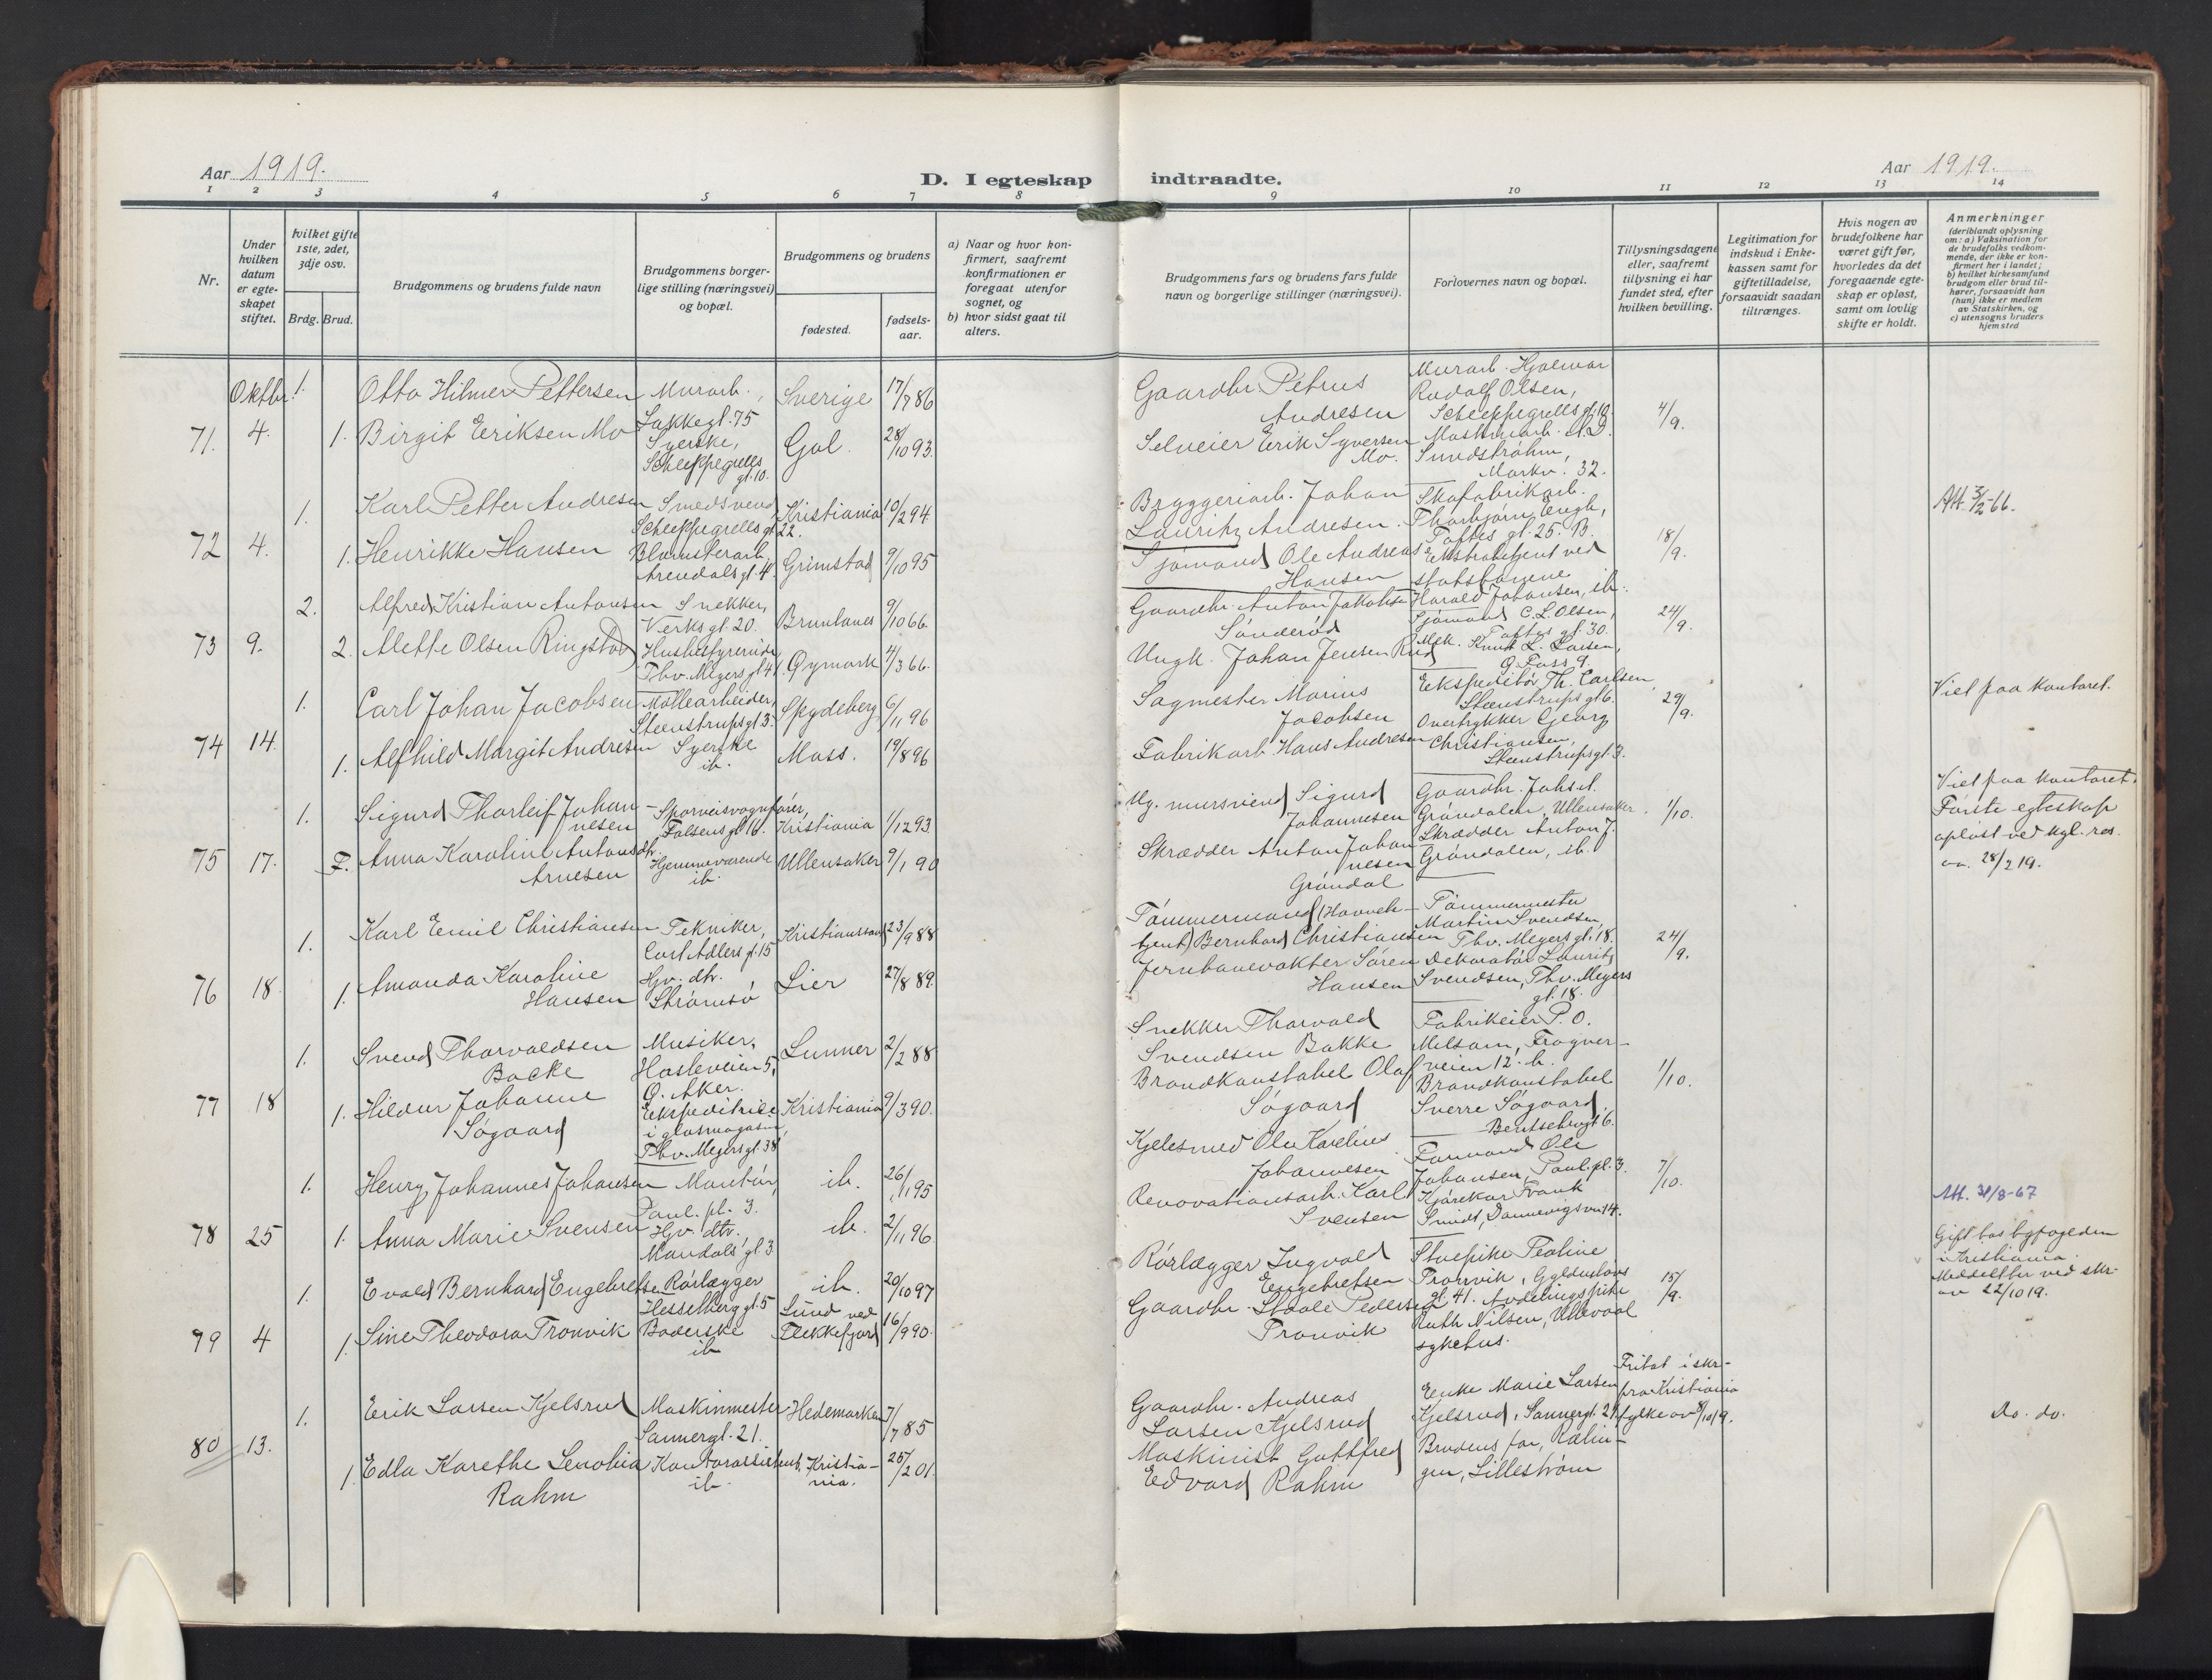 Aar 1919.
D. I egteskap indtraadte.
Aar 1919.
1 2 3 4 5 6 7 8 9 10 11 12 13 14
Nr.
Under hvilken datum er egteskapet stiftet.
hvilket gifte 1ste, 2det, 3dje osv.
Brdg. Brud.
Brudgommens og brudens fulde navn
Brudgommens borgerlige stilling (næringsvei) og bopæl.
Brudgommens og brudens
fødested.
fødselsaar.
a) Naar og hvor konfirmert, saafremt konfirmationen er foregaat utenfor sognet, og
b) hvor sidst gaat til alters.
Brudgommens fars og brudens fars fulde navn og borgerlige stillinger (næringsvei).
Forlovernes navn og bopæl.
Tillysningsdagene eller, saafremt tillysning ei har fundet sted, efter hvilken bevilling.
Legitimation for indskud i Enkekassen samt for giftetilladelse, forsaavidt saadan tiltrænges.
Hvis nogen av brudefolkene har været gift før, hvorledes da det foregaaende egteskap er opløst, samt om lovlig skifte er holdt.
Anmerkninger
(deriblandt oplysning om: a) Vaksination for de brudefolks vedkommende, der ikke er konfirmert her i landet; b) hvilket kirkesamfund brudgom eller brud tilhører, forsaavidt han (hun) ikke er medlem av Statskirken, og c) utensogns bruders hjemsted
71. Oktbr. 4. 1. Otto Hilmer Pettersen Murarb., Lakkegt. 75 Sverige 17/7 86
1. Birgit Eriksen Mo Syerske, Scheppegrells gt. 10. Gol. 28/10 93.
Gaardbr. Petrus Andresen
Selveier Erik Syversen Mo.
Murarb. Hjalmar Rudolf Olsen, Scheppegrells gt. 10.
Maskinarb. A. D. Sundstrøhm, Markv. 32.
4/9.
72 4. 1. Karl Petter Andresen Smedsvend, Scheppegrells gt. 22. Kristiania 10/2 94
1. Henrikke Hansen Blomsterarb. Arendals gt. 4. Grimstad 9/10 95
Bryggeriarb. Johan Lauritz Andresen.
Sjømand Ole Andreas Hansen
Skofabrikarb. Thorbjørn Engh, Toftes gt. 25. B.
Ekstrabetjent ved statsbanene Harald Johansen, ib.
18/9.
Att. 3/2-66.
73 9. 2. Alfred Kristian Antonsen Snekker, Verksgt. 20. Brunlanes 9/10 66.
2. Alette Olsen Ringstad Husbestyrerinde Thv. Meyers gt. 41. Øymark 4/3 66.
Gaardbr. Anton Jakobsen Sønderød
Ungk. Johan Jensen Rud
Sjømand C. L. Olsen, Toftes gt. 30.
Mek. Knut L. Larsen, Ø. Foss 9.
24/9.
74 14. 1. Carl Johan Jacobsen Møllearbeider, Steenstrupsgt. 3. Spydeberg 6/11 96
1. Alfhild Margit Andresen Syerske ib. Moss. 19/8 96
Sagmester Marius Jacobsen
Fabrikarb. Hans Andresen
Ekspeditør Th. Carlsen, Steenstrupsgt. 6.
Overtrykker Georg Christiansen, Steenstrupsgt. 3.
29/9.
Viet paa kontoret.
75 17. 1. Sigurd Thorleif Johannesen Sporveisvognfører, Falsens gt. 16. Kristiania 1/12 93.
F. Anna Karoline Antonsdtr. Arnesen Hjemmeværende ib. Ullensaker 9/1 90
Ug. mursvend Sigurd Johannesen
Skrædder Anton Johannesen Grøndal
Gaardbr. Johs. A. Grøndalen, Ullensaker.
Skrædder Anton J. Grøndalen, ib.
1/10.
Viet paa kontoret. Første egteskap opløst ved kgl. res. av. 28/2 19.
76 18. 1. Karl Emil Christiansen Tekniker, Carl Adlers gt. 15 Kristianssand 23/9 88
1. Amanda Karoline Hansen Hjv. dtr. Strømsø Lier 27/8 89.
Tømmermand (Havnebetjent) Bernhard Christiansen
Jernbanevokter Søren Hansen
Tømmermester Martin Svendsen, Thv. Meyers gt. 18.
Dekoratør Lauritz Svendsen, Thv. Meyers gt. 18.
24/9.
77 18 1. Svend Thorvaldsen Backe Musiker, Hasleveien 5, Ø. Aker. Lunner 2/2 88
1. Hildur Johanne Søgaard Ekspeditrice i glasmagasin, Thv. Meyers gt. 38 Kristiania 9/3 90.
Snekker Thorvald Svendsen Bakke
Brandkonstabel Olaf Søgaard
Fabrikeier P. O. Melsom, Frognerveien 12. b.
Brandkonstabel Sverre Søgaard, Bentsebrogt. 6.
1/10.
78 25 1. Henry Johannes Johansen Montør, Paul. pl. 3. ib. 26/11 95
1. Anna Marie Svensen Hjv. dtr. Mandals gt. 3 ib. 2/11 96.
Kjelesmed Ole Karelius Johannesen
Renovationsarb. Karl Svensen
Formand Ole Johansen, Paul. pl. 3.
Kjørekar Frank Smidt, Dannevigsvn. 14.
7/10.
Att. 31/8-67
79 4 1. Evald Bernhard Engebretsen Rørlægger Hesselberg gt. 5 ib. 20/10 97
1. Sine Theodora Tronvik Baderske ib Lund ved Flekkefjord 16/9 90.
Rørlægger Ingvald Engebretsen
Gaardbr. Staale Pedersen Tronvik
Stuepike Teoline Tronvik, Gyldenløvs gt. 41.
Avdelingspike Ruth Nilsen, Ullevaal sykehus.
15/9.
Gift hos byfogeden i Kristiania. Meddelt her ved skr. av 22/10 19.
80 13. 1. Erik Larsen Kjelsrud Maskinmester Sannergt. 21. Hedemarken 7/7 85
1. Edla Karethe Senobia Rahm Kontorassistent, ib. Kristiania. 25/2 01.
Gaardbr. Andreas Larsen Kjelsrud
Maskinist Gottfred Edvard Rahm
Enke Marie Larsen Kjelsrud, Sannergt. 21
Brudens far, Rælingen, Lillestrøm
Fritat i skr. fra Kristiania fylke av 8/10 19.
Do. do.